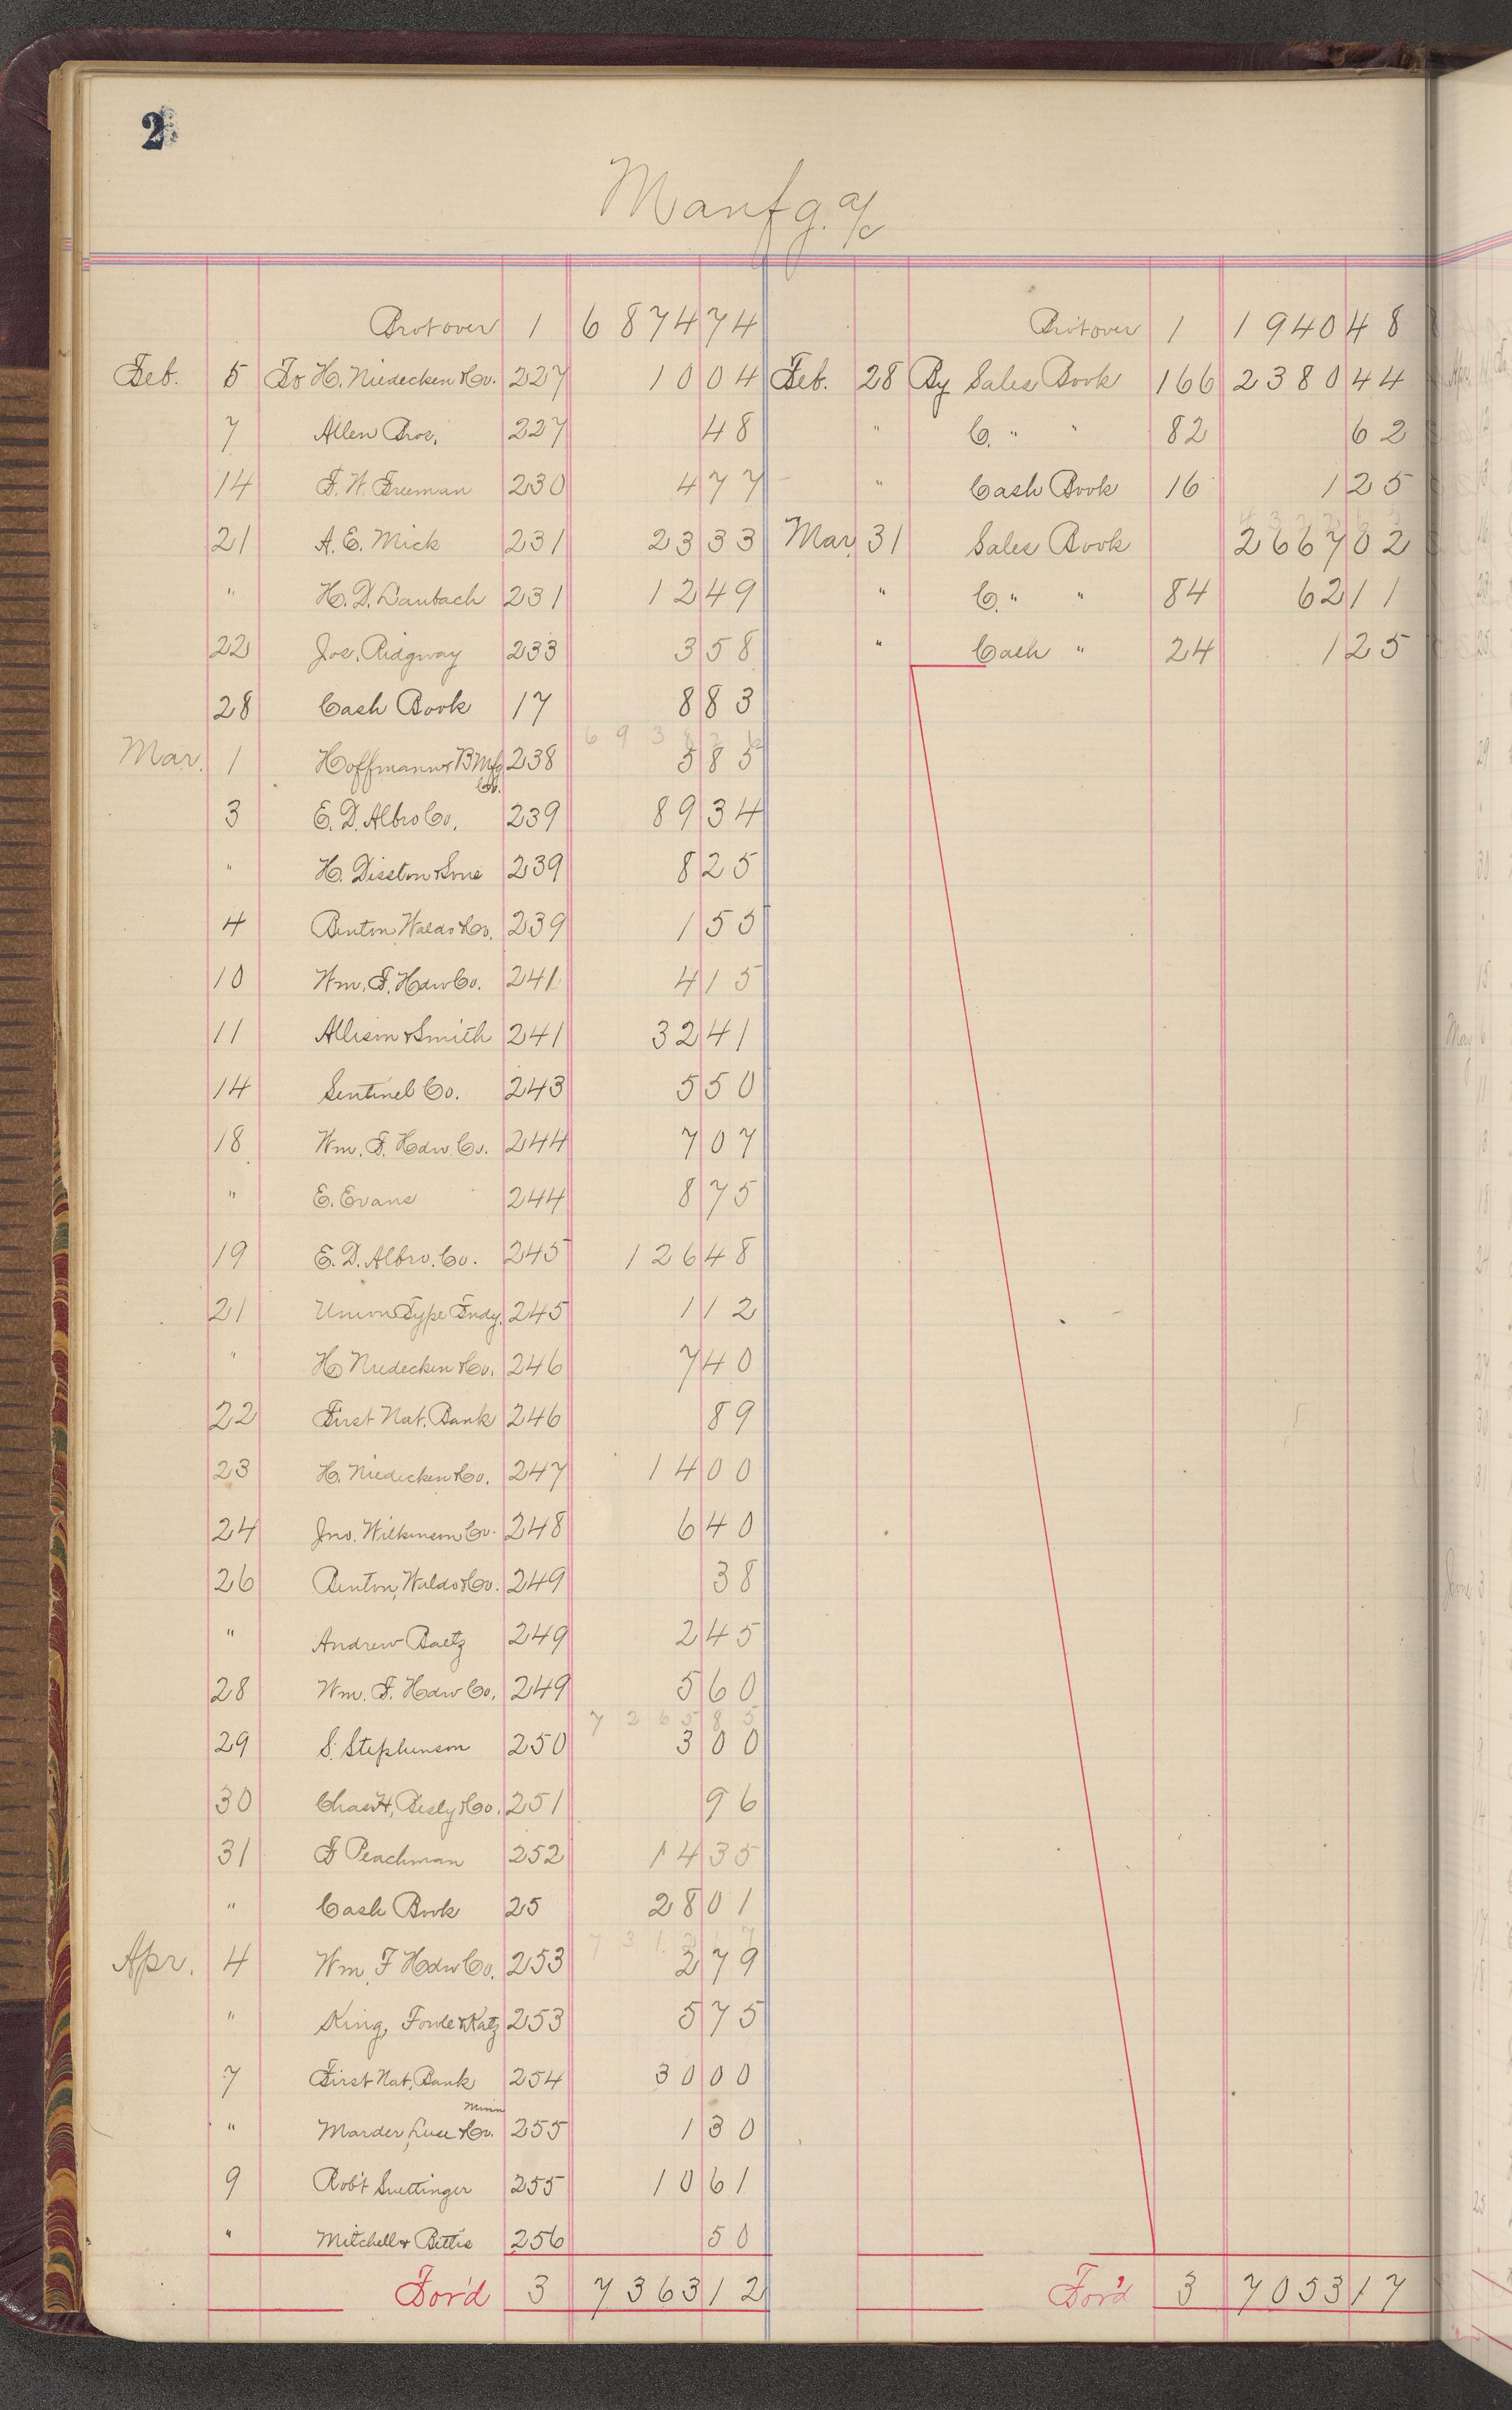 2
Manfg. a/c
Brot over 1 6874 74
Feb. 5 To H. Niedecken & Co. 227 10 04
7 Allen Bros. 227 48
14 F. W. Freeman 230 4 77
21 A. E. Mick 231 23 33
" H. D. Laubach 231 12 49
22 Jos. Ridgway 233 3 58
28 Cash Book 17 8 83
Mar. 1 Hoffmann & B Mfg Co. 238 5 85
3 E. D. Albro Co. 239 89 34
" H. Disston & Sons 239 8 25
4 Benton, Waldo & Co. 239 1 55
10 Wm. F. Hdw Co. 241 4 15
11 Allison & Smith 241 32 41
14 Sentinel Co. 243 5 50
18 Wm. F. Hdw. Co. 244 7 07
" E. Evans 244 8 75
19 E. D. Albro. Co. 245 126 48
21 Union Type Fndy. 245 1 12
" H Niedecken & Co. 246 7 40
22 First Nat. Bank 246 89
23 H. Niedecken & Co. 247 14 00
24 Jno. Wilkinson Co. 248 6 40
26 Benton, Waldo & Co. 249 38
" Andrew Baetz 249 2 45
28 Wm. F. Hdw Co. 249 5 60
7265 85
29 S. Stephenson 250 3 00
30 Chas. H. Besly & Co. 251 96
31 F Peachman 252 14 35
" Cash Book 25 28 01
Apr. 4 Wm. F Hdw Co. 253 2 79
" King, Fowle & Katz 253 5 75
7 First Nat. Bank 254 30 00
" Marder, Luse & Co. Minn 255 1 30
9 Rob't Suettinger 255 10 61
" Mitchell & Bettis 256 50
For'd 3 7363 12
Bro't over 1 1940 48
Feb. 28 By Sales Book 166 2380 44
" C. " " 82 62
" Cash Book 16 1 25
Mar. 31 Sales Book 2667 02
" C. " " 84 62 11
" Cash " 24 1 25
For'd 3 7053 17